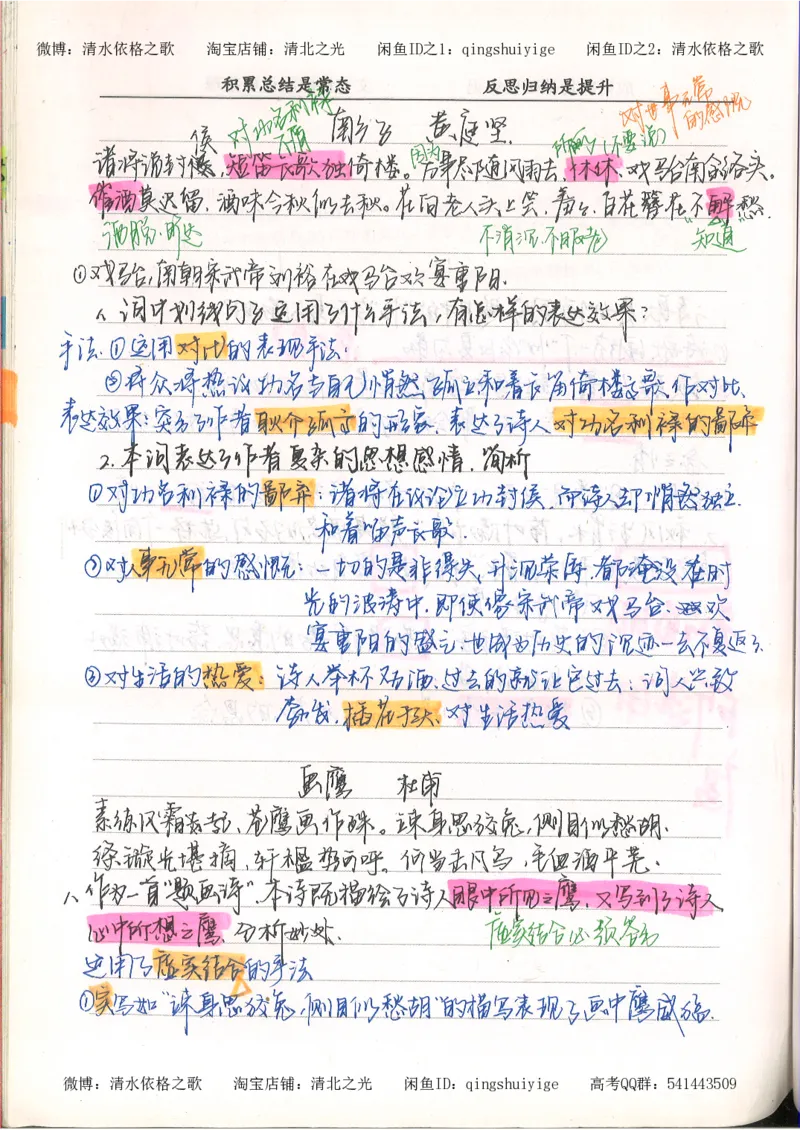 微博：清水依格之歌 淘宝店铺：清北之光 闲鱼ID之1：qingshuiyige 闲鱼ID之2：清水依格之歌
积累总结是常态 反思归纳是提升
对世事无常
的感慨
对功名利禄
侯
南乡子 黄庭坚.
因为
所以(不要说)
诸将说封侯, 短笛长歌独倚楼。万事尽随风雨去, 休休, 戏马台南金络头。
催酒莫迟留, 酒味今秋似去秋。花向老人头上笑, 羞羞, 白花簪在不解愁.
洒脱.旷达 不消沉.不服老 知道
①戏马台,南朝宋武帝刘裕在戏马台欢宴重阳.
1. 词中划线句子运用了什么手法,有怎样的表达效果?
手法.①运用对比的表现手法.
②将众将热议功名与自己悄然孤立和着长笛倚楼之歌作对比.
表达效果:突出了作者耿介孤高的形象,表达了诗人对功名利禄的鄙弃
2.本词表达了作者复杂的思想感情,简析
①对功名利禄的鄙弃:诸将在议论立功封侯,而诗人却悄然独立.
和着笛声长歌.
②对人事无常的感慨:一切的是非得失,升沉荣辱,都淹没在时
光的波涛中,即便像宋武帝戏马台 欢
宴重阳的盛会,也成为历史的沉迹一去不复返了.
③对生活的热爱:诗人举杯 酒,过去的就让它过去;词人兴致
勃发,插花于头,对生活热爱
画鹰 杜甫
素练风霜起,苍鹰画作殊。㧐身思狡兔,侧目似愁胡.
绦镟光堪摘,轩楹势可呼。何当击凡鸟,毛血洒平芜.
1.作为一首"题画诗",本诗既描绘了诗人眼中所见之鹰,又写到了诗人
心中所想之鹰,分析妙处.
虚实结合必须答
运用了虚实结合的手法
①实写如"㧐身思狡兔,侧目似愁胡"的描写表现了画中鹰威猛.
微博：清水依格之歌 淘宝店铺：清北之光 闲鱼ID：qingshuiyige 高考QQ群：541443509